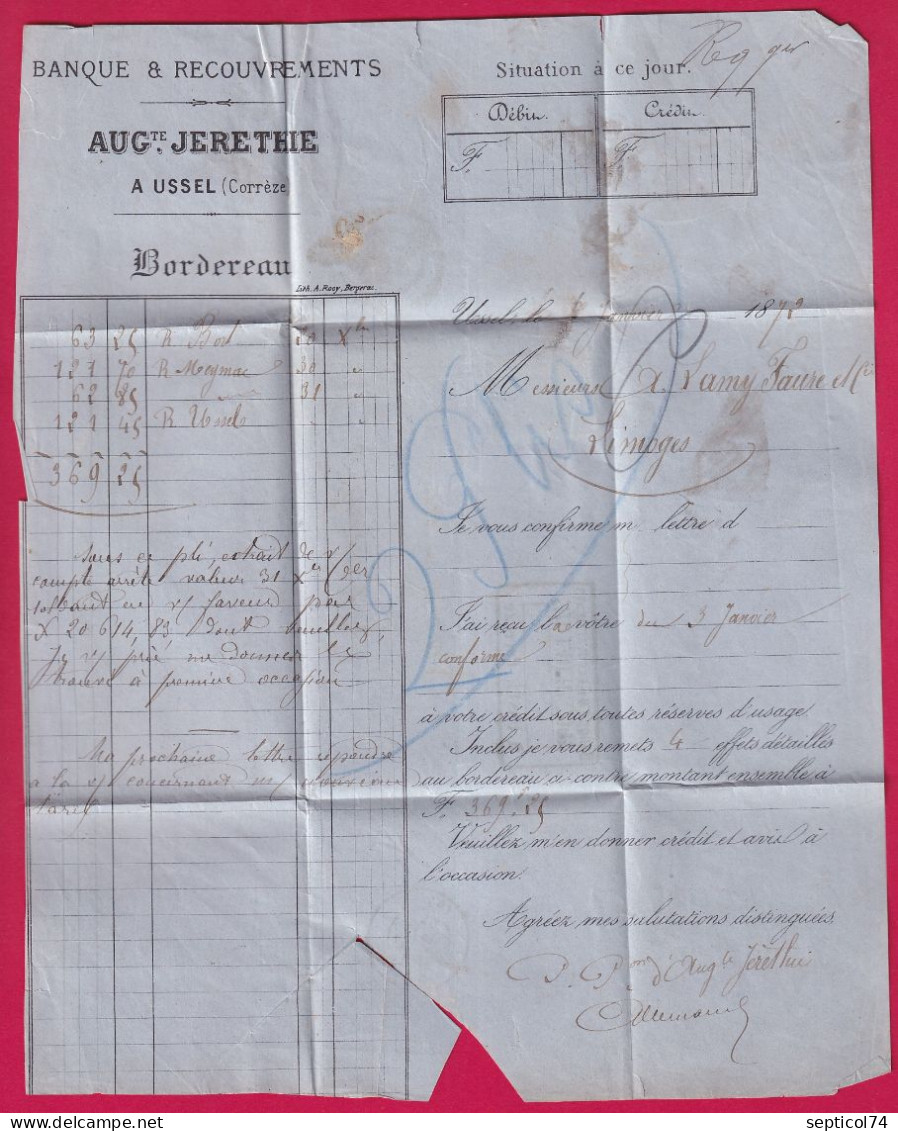 BANQUE & RECOUVREMENTS
AUG.TE JERETHIE
A USSEL (Corrèze
Situation à ce jour.
Débit.
Crédit.
F.
F.
Bordereau
Lith. A. Rooy, Bergerac.
63 25 R Bort 20
121 70 R Meymac 30 "
62 85 " 31 "
121 45 R Ussel "
369 25
sous ce pli, extrait de v/
compte arrêté valeur 31 Xbre
soldant en v/ faveur par
20 614,83 dont veuillez,
je v/ prie me donner
à première occasion
Ma prochaine lettre répondra
à la v/ concernant
tarif
Ussel, le Janvier 1872
Messieurs A Lamy Faure et Cie
Limoges
Je vous confirme m lettre d
J'ai reçu la vôtre du 3 Janvier
conforme
à votre crédit sous toutes réserves d'usage
Inclus je vous remets 4 effets détaillés
au bordereau ci-contre montant ensemble à
F. 369.25
Veuillez m'en donner crédit et avis à
l'occasion.
Agréez mes salutations distinguées,
P. Pon d'Augte Jerethie
septicol74